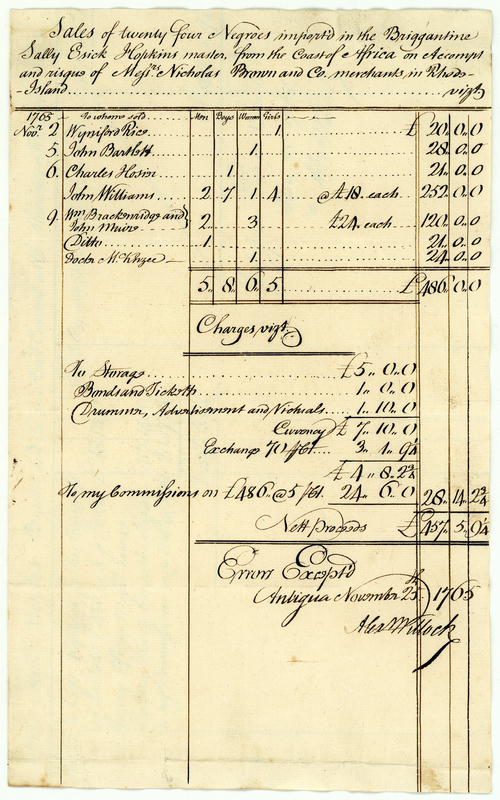 Sales of twenty four Negroes import'd in the Briggantine
Sally Esick Hopkins master, from the Coast of Africa on Accompt
and risque of Messrs. Nicholas Brown and Co. merchants in Rhode-
-Island vizt
1765 To whome sold Men Boys Women Girls
Novr. 2 Wyniford Rice 1 £ 20,,0,,0
5 John Bartlett 1 28,,0,,0
6 Charles Hosin 1 21,,0,,0
John Williams 2 7 1 4 @ £18 each 252,,0,,0
9 Wm. Brackenridge and
John Muire 2 3 £24 each 120,,0,,0
Ditto 1 21,,0,,0
Doctr. 1 24,,0,,0
5 8 6 5 £ 486,,0,,0
Charges, vizt.
To Storage £5,,0,,0
Bonds and Ticketts 1,,0,,0
Drummer, Advertisement and Victuals 1,,10,,0
Currency £7,,10,,0
Exchange 70 3,,1,,9¼
£4,,8,,2¾
To my Commissions on £486 @ 5 24,,6,,0 28,,14,,2¾
Nett Proceeds £ 457,,5,,9¼
Errors Except'd
Antigua November 25th 1765
Alexr Willock